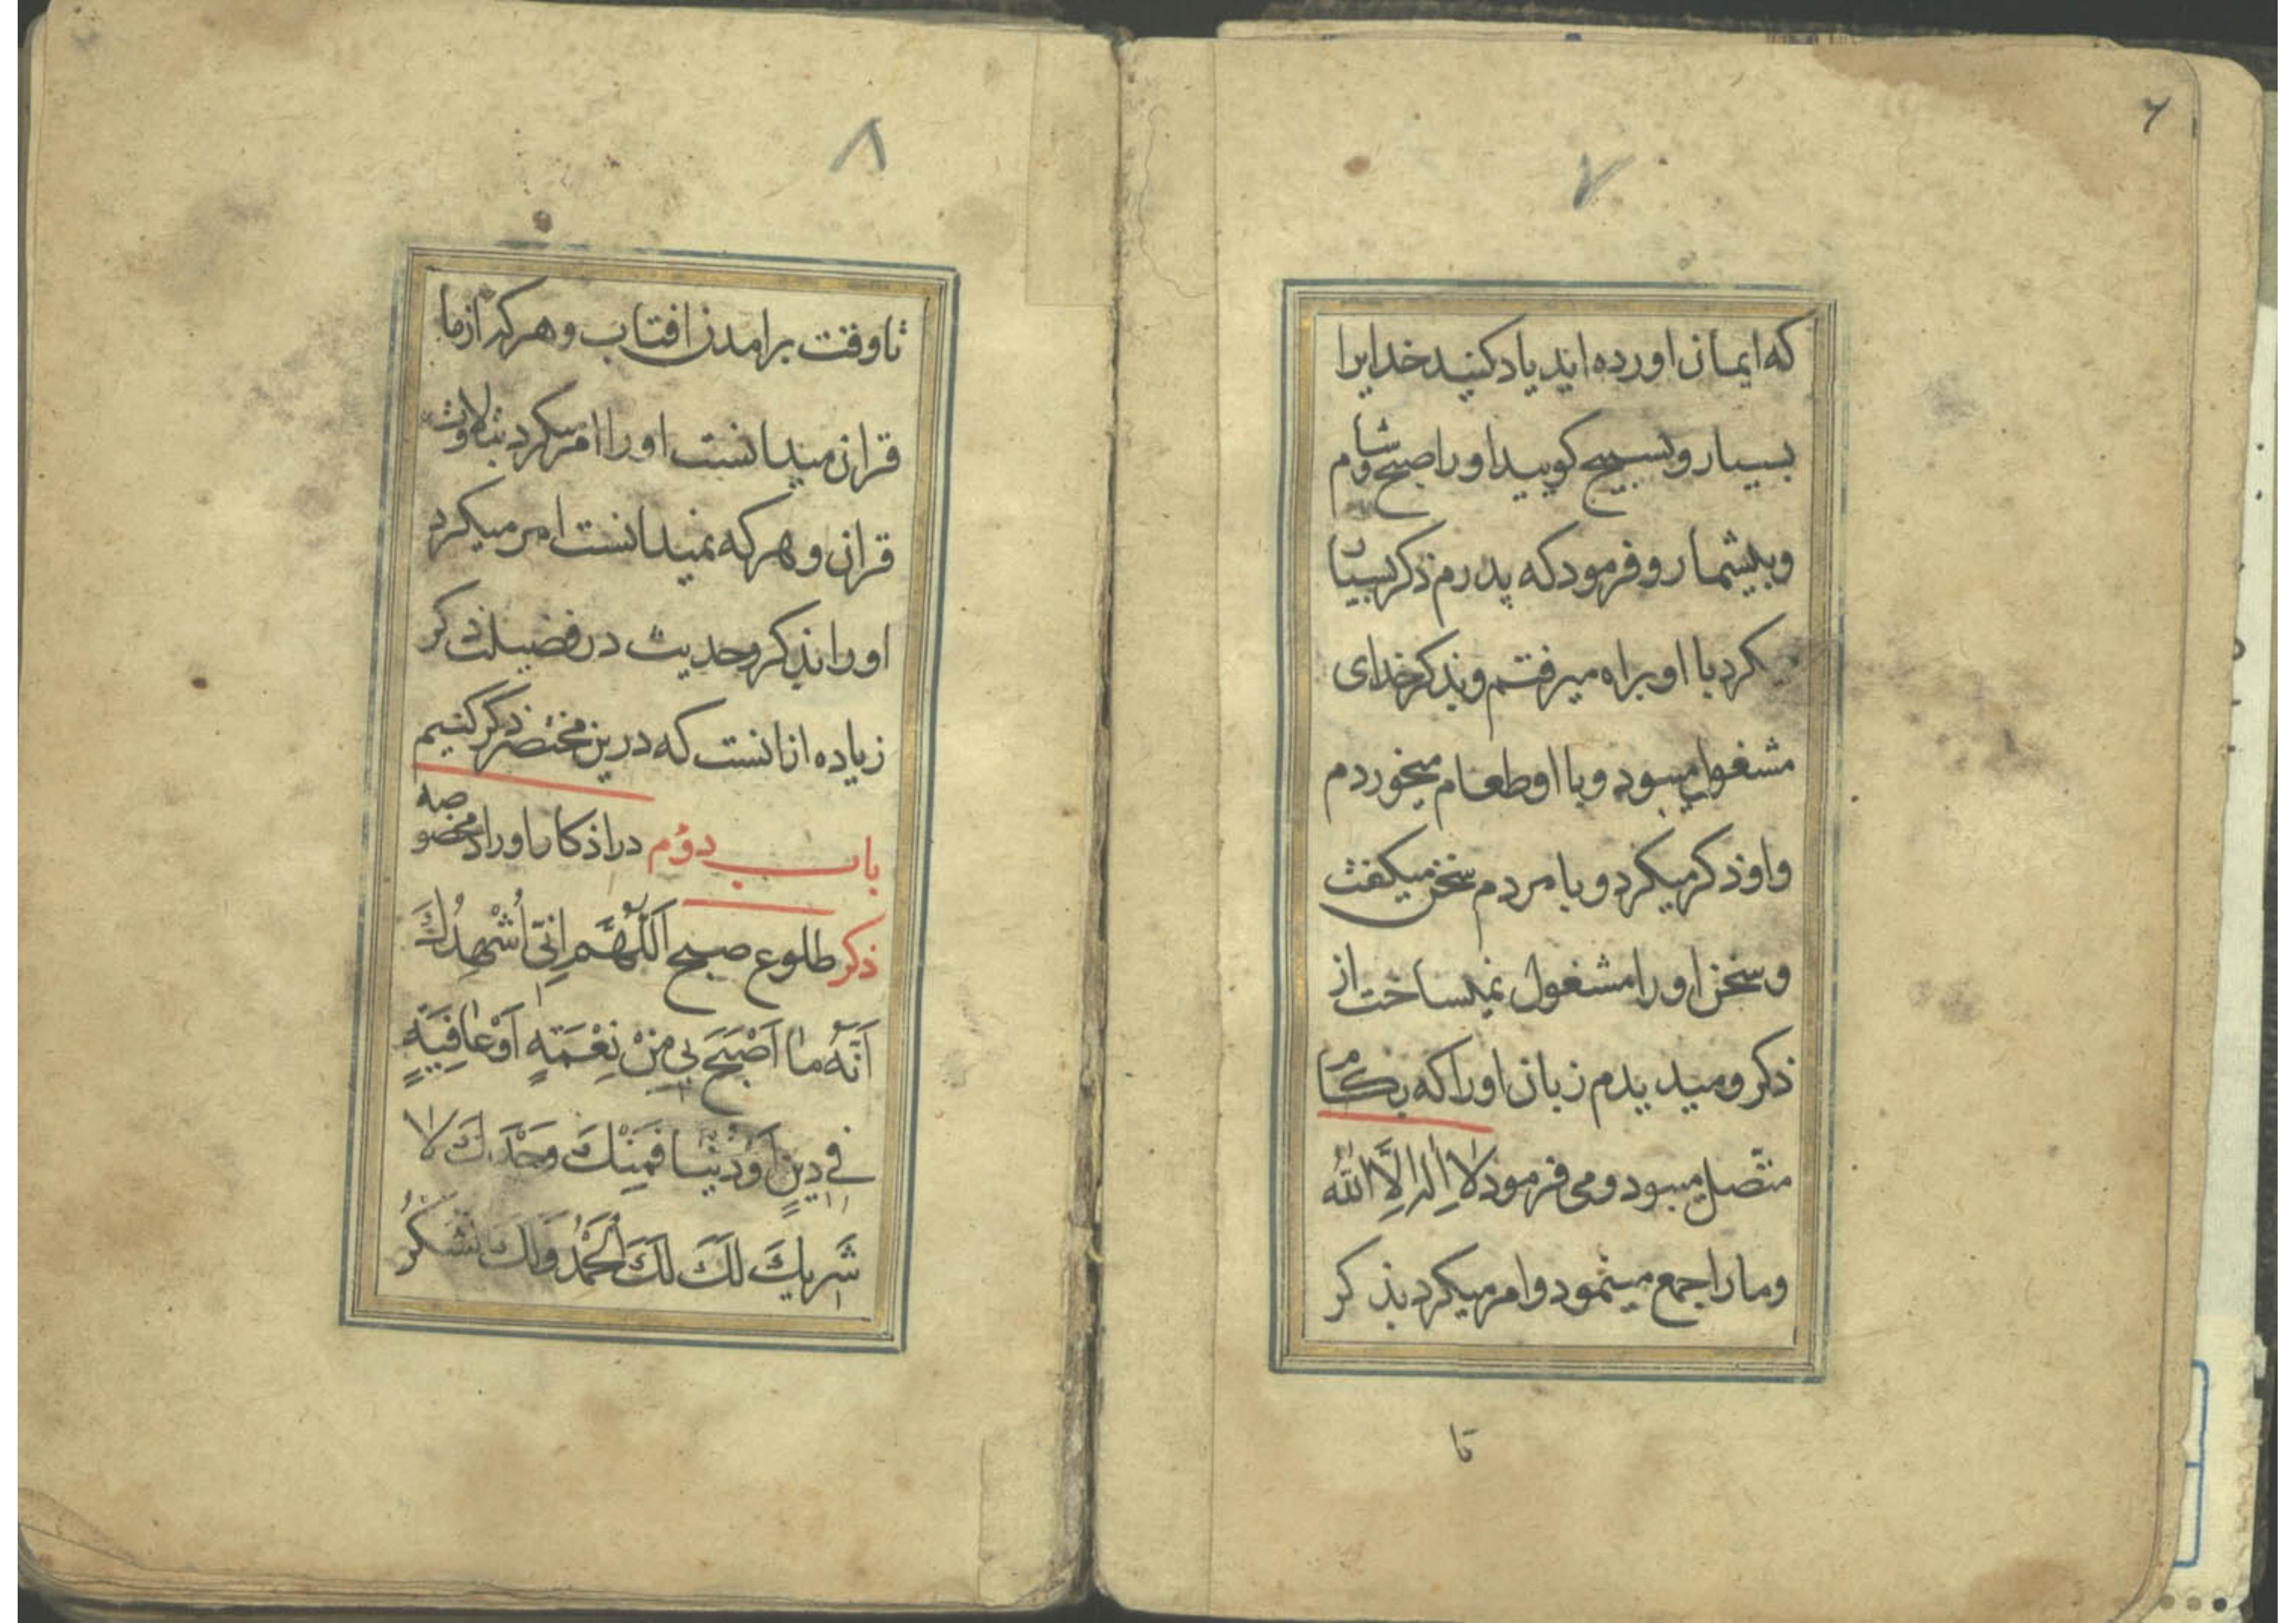 ۶
۷
که ایمان اورده اید یاد کنید خدایرا
بسیار و تسبیح کویید او را صبح و شام
و بیشمار و فرمود که پدرم ذکر بسیار
میکرد با او براه میرفتم و بذکر خدای
مشغول میبود و با او طعام میخوردم
و او ذکر میکرد و با مردم سخن میکفت
و سخن او را مشغول نمیساخت از
ذکر و میدیدم زبان او را که بکام
متّصل میبود و می فرمود لا اِلٰه اِلَّا اللّٰهُ
و ما را جمع مینمود و امر میکرد بذکر
تا
۸
تا وقت برامدن افتاب و هر که از ما
قران میدانست او را امر میکرد بتلاوت
قران و هر که نمیدانست امر میکرد
او را بذکر و حدیث در فضیلت ذکر
زیاده از انست که درین مختصر ذکر کنیم
باب دوُم در اذکار و اوراد مخصوصه
ذکر طلوع صبح اَللّٰهُمَّ اِنّی اُشْهِدُكَ
اَنَّهُ ما اَصْبَحَ بي مِنْ نِعْمَةٍ اَوْ عافِيَةٍ
في دينٍ اَوْ دُنْيا فَمِنْكَ وَحْدَكَ لا
شَريكَ لَكَ لَكَ الْحَمْدُ وَلَكَ الشُّكْرُ